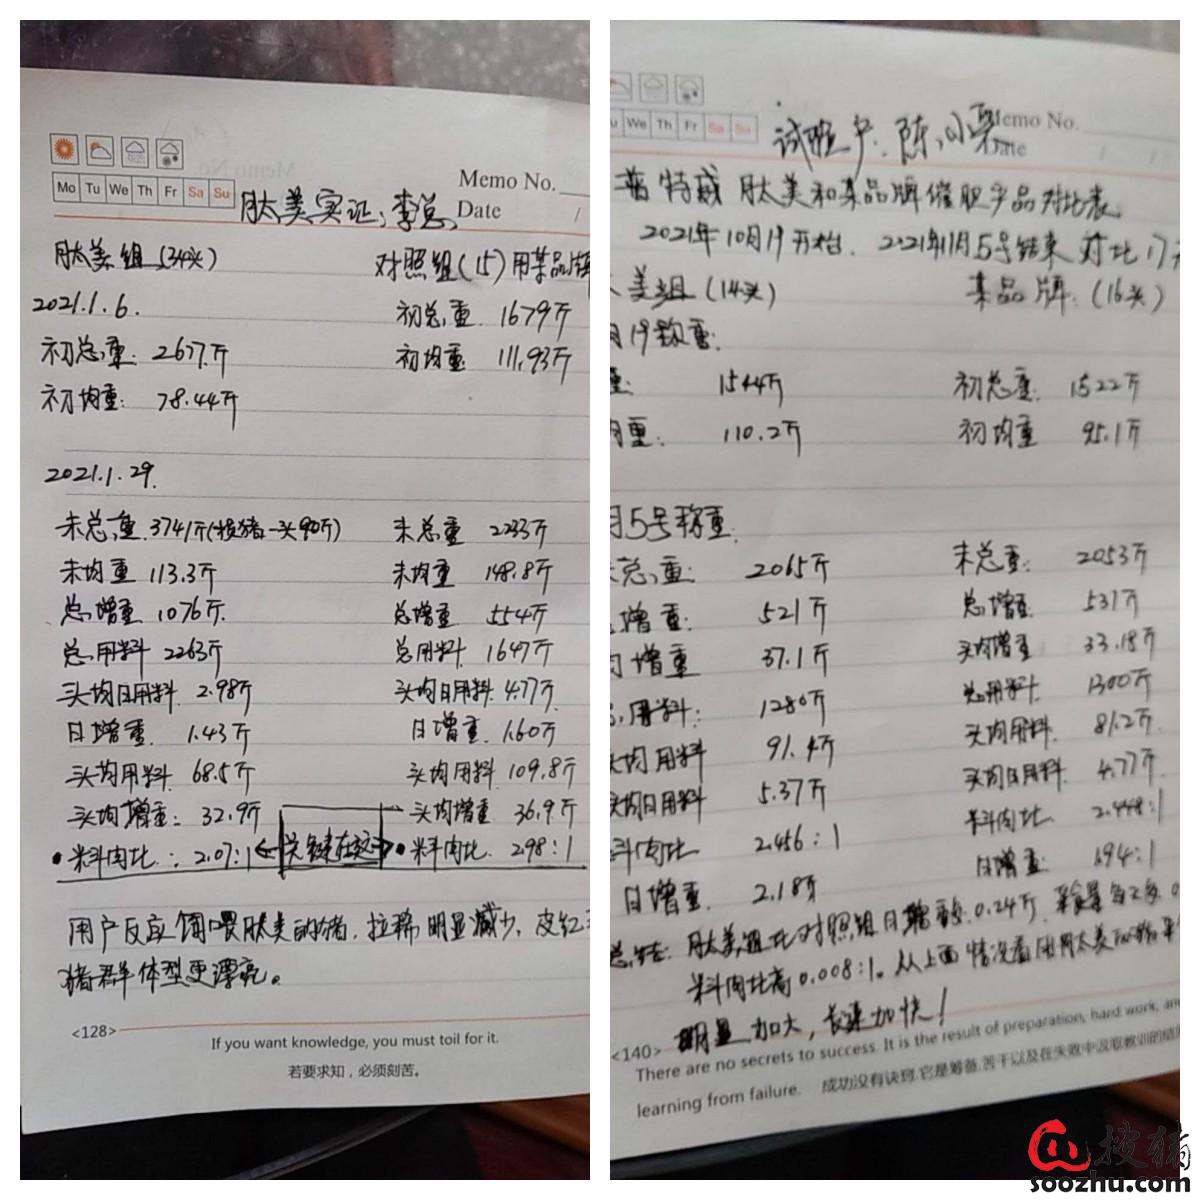 Memo No.
Mo Tu We Th Fr Sa Su
Date /
肽美实证:李总
肽美组(34头) 对照组(15)用某品牌
2021.1.6. 初总重 1679斤
初总重: 2677斤 初均重 111.93斤
初均重: 78.44斤
2021.1.29.
末总重 3741斤(损猪一头90斤) 末总重 2233斤
末均重 113.3斤 末均重 148.8斤
总增重 1076斤. 总增重 554斤
总用料 2263斤 总用料 1647斤
头均日用料 2.98斤 头均日用料 4.77斤
日增重 1.43斤 日增重 1.60斤
头均用料 68.5斤 头均用料 109.8斤
头均增重: 32.9斤 头均增重 36.9斤
•料肉比: 2.07:1 关键在这 •料肉比 2.98:1
用户反应饲喂肽美的猪,拉稀明显减少,皮红
猪群体型更漂亮。
<128>
If you want knowledge, you must toil for it.
若要求知,必须刻苦。
u We Th Fr Sa Su
Memo No.
Date / /
试验户:陈小
普特威肽美和某品牌催肥产品对比表
2021年10月19开始. 2021年11月5号结束 对比17
美组(14头) 某品牌:(16头)
月19称重:
重: 1544斤 初总重: 1522斤
均重: 110.2斤 初均重 95.1斤
月5号称重:
末总重: 2065斤 末总重: 2053斤
增重: 521斤 总增重: 531斤
均增重 37.1斤 头均增重 33.18斤
总用料: 1280斤 总用料 1300斤
头均用料 91.4斤 头均用料 81.2斤
头均日用料 5.37斤 头均日用料 4.77斤
料肉比 2.456:1 料肉比 2.448:1
日增重 2.18斤 日增重 1.94:1
总结: 肽美组比对照组日增重 0.24斤,采食量
料肉比高0.008:1。从上面情况看用肽美
明显加大,长速加快!
<140>
There are no secrets to success. It is the result of preparation, hard work, and
learning from failure. 成功没有诀窍.它是筹备.苦干以及在失败中汲取教训的结
搜猪
soozhu.com